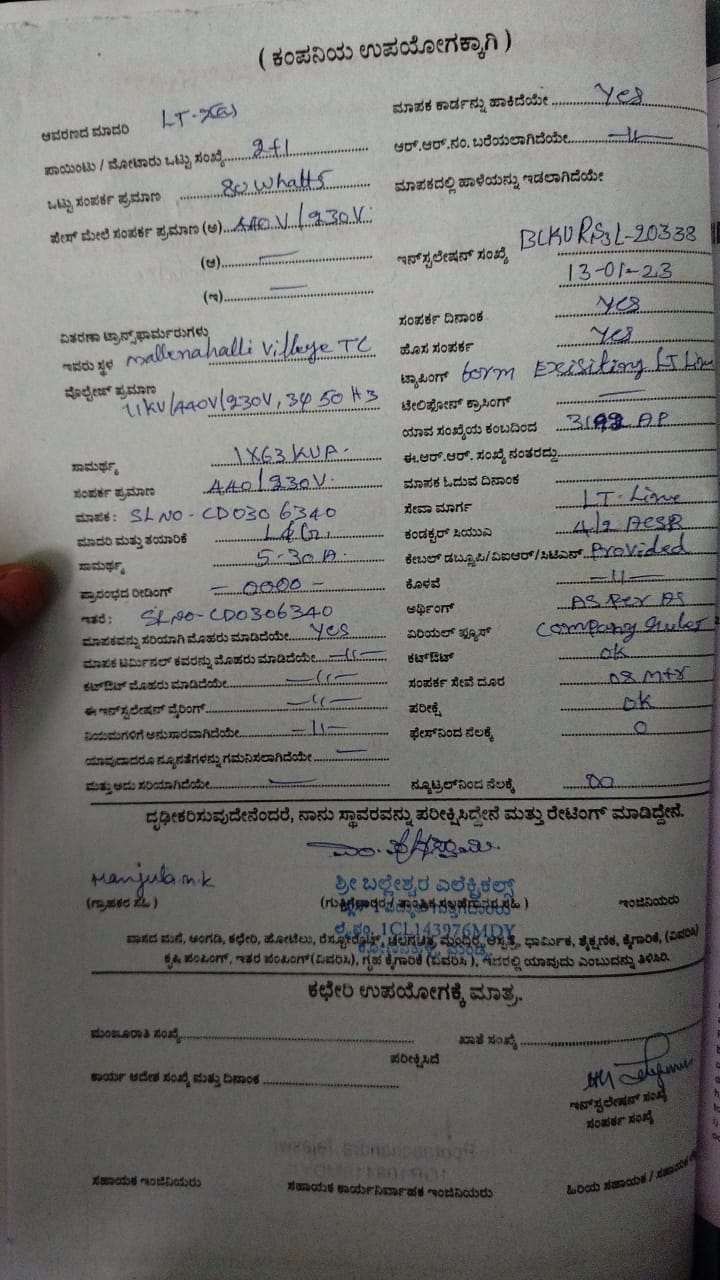 ( ಕಂಪನಿಯ ಉಪಯೋಗಕ್ಕಾಗಿ )
ಆವರಣದ ಮಾದರಿ LT-
ಪಾಯಿಂಟು / ಮೋಟಾರು ಒಟ್ಟು ಸಂಖ್ಯೆ 2+1
ಒಟ್ಟು ಸಂಪರ್ಕ ಪ್ರಮಾಣ 80 Whatts
ಫೇಸ್ ಮೇಲೆ ಸಂಪರ್ಕ ಪ್ರಮಾಣ (ಅ) 440V/230V.
(ಆ) —
(ಇ) —
ವಿತರಣಾ ಟ್ರಾನ್ಸ್‌ಫಾರ್ಮರುಗಳು
ಇವರು ಸ್ಥಳ Mallenahalli Village TC
ವೋಲ್ಟೇಜ್ ಪ್ರಮಾಣ
11KV/440V/230V, 3φ 50 HZ
ಸಾಮರ್ಥ್ಯ 1X63 KVA.
ಸಂಪರ್ಕ ಪ್ರಮಾಣ 440/230V.
ಮಾಪಕ : SL NO-CD0306340
ಮಾದರಿ ಮತ್ತು ತಯಾರಿಕೆ L&G.
ಸಾಮರ್ಥ್ಯ 5-30A.
ಪ್ರಾರಂಭದ ರೀಡಿಂಗ್ - 0000 -
ಇತರೆ : SL NO-CD0306340
ಮಾಪಕವನ್ನು ಸರಿಯಾಗಿ ಮೊಹರು ಮಾಡಿದೆಯೇ Yes
ಮಾಪಕ ಟರ್ಮಿನಲ್ ಕವರನ್ನು ಮೊಹರು ಮಾಡಿದೆಯೇ —11—
ಕಟ್‌ಔಟ್ ಮೊಹರು ಮಾಡಿದೆಯೇ —11—
ಈ ಇನ್‌ಸ್ಟಲೇಷನ್ ವೈರಿಂಗ್ —11—
ನಿಯಮಗಳಿಗೆ ಅನುಸಾರವಾಗಿದೆಯೇ —11—
ಯಾವುದಾದರೂ ನ್ಯೂನತೆಗಳನ್ನು ಗಮನಿಸಲಾಗಿದೆಯೇ —
ಮತ್ತು ಅದು ಸರಿಯಾಗಿದೆಯೇ —
ಮಾಪಕ ಕಾರ್ಡನ್ನು ಹಾಕಿದೆಯೇ Yes
ಆರ್.ಆರ್.ನಂ. ಬರೆಯಲಾಗಿದೆಯೇ —11—
ಮಾಪಕದಲ್ಲಿ ಹಾಳೆಯನ್ನು ಇಡಲಾಗಿದೆಯೇ
ಇನ್‌ಸ್ಟಲೇಷನ್ ಸಂಖ್ಯೆ BLKURS3L-20338
13-01-23
ಸಂಪರ್ಕ ದಿನಾಂಕ Yes
ಹೊಸ ಸಂಪರ್ಕ Yes
ಟ್ಯಾಪಿಂಗ್ form Exisiting LT Line
ಟೆಲಿಫೋನ್ ಕ್ರಾಸಿಂಗ್ —
ಯಾವ ಸಂಖ್ಯೆಯ ಕಂಬದಿಂದ AP
ಈ.ಆರ್.ಆರ್. ಸಂಖ್ಯೆ ನಂತರದ್ದು
ಮಾಪಕ ಓದುವ ದಿನಾಂಕ
ಸೇವಾ ಮಾರ್ಗ LT-Line
ಕಂಡಕ್ಟರ್ ಸಿಯುಎ 4/2 ACSR
ಕೇಬಲ್ ಡಬ್ಲ್ಯೂಪಿ/ವಿಐಆರ್/ಸಿಟಿಎಸ್ Provided
ಕೊಳವೆ —11—
ಅರ್ಥಿಂಗ್ AS Per AS
ಏರಿಯಲ್ ಫ್ಯೂಸ್ Company Rules
ಕಟ್‌ಔಟ್ OK
ಸಂಪರ್ಕ ಸೇವೆ ದೂರ 08 Mtr
ಪರೀಕ್ಷೆ OK
ಫೇಸ್‌ನಿಂದ ನೆಲಕ್ಕೆ 0
ನ್ಯೂಟ್ರಲ್‌ನಿಂದ ನೆಲಕ್ಕೆ 00
ದೃಢೀಕರಿಸುವುದೇನೆಂದರೆ, ನಾನು ಸ್ಥಾವರವನ್ನು ಪರೀಕ್ಷಿಸಿದ್ದೇನೆ ಮತ್ತು ರೇಟಿಂಗ್ ಮಾಡಿದ್ದೇನೆ.
Manjula.m.k
(ಗ್ರಾಹಕರ ಸಹಿ )
ಶ್ರೀ ಬಲ್ಲೇಶ್ವರ ಎಲೆಕ್ಟ್ರಿಕಲ್ಸ್
ಇಂಜಿನಿಯರು
ಲೈ.ನಂ. 1CL143976MDY
ವಾಸದ ಮನೆ, ಅಂಗಡಿ, ಕಛೇರಿ, ಹೋಟೆಲು, ರೆಸ್ಟೋರೆಂಟ್, ಚಲನಚಿತ್ರ ಮಂದಿರ, ಆಸ್ಪತ್ರೆ, ಧಾರ್ಮಿಕ, ಶೈಕ್ಷಣಿಕ, ಕೈಗಾರಿಕೆ, (ವಿವರಿಸಿ)
ಕೃಷಿ ಪಂಪಿಂಗ್, ಇತರ ಪಂಪಿಂಗ್ (ವಿವರಿಸಿ), ಗೃಹ ಕೈಗಾರಿಕೆ (ವಿವರಿಸಿ ), ಇವರಲ್ಲಿ ಯಾವುದು ಎಂಬುದನ್ನು ತಿಳಿಸಿರಿ.
ಕಛೇರಿ ಉಪಯೋಗಕ್ಕೆ ಮಾತ್ರ.
ಮಂಜೂರಾತಿ ಸಂಖ್ಯೆ
ಖಾತೆ ಸಂಖ್ಯೆ
ಪರೀಕ್ಷಿಸಿದೆ
ಕಾರ್ಯ ಆದೇಶ ಸಂಖ್ಯೆ ಮತ್ತು ದಿನಾಂಕ
ಇನ್‌ಸ್ಟಲೇಷನ್ ಸಂಖ್ಯೆ
ಸಂಪರ್ಕ ಸಂಖ್ಯೆ
ಸಹಾಯಕ ಇಂಜಿನಿಯರು
ಸಹಾಯಕ ಕಾರ್ಯನಿರ್ವಾಹಕ ಇಂಜಿನಿಯರು
ಹಿರಿಯ ಸಹಾಯಕ / ಸಹಾಯಕ